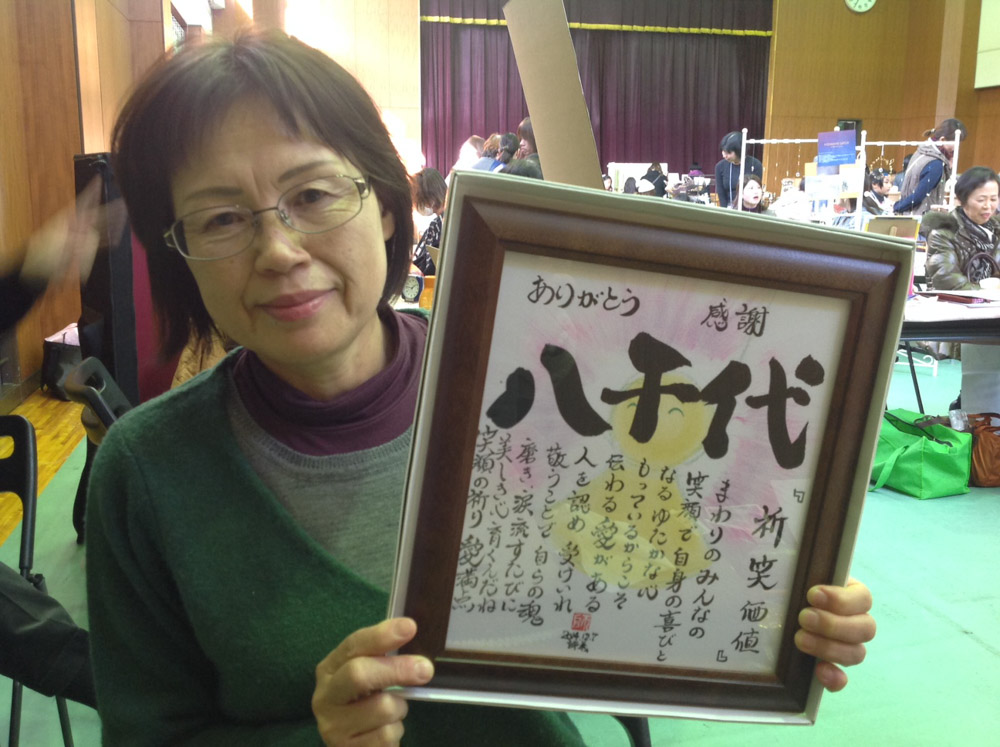 ありがとう
感謝
八千代
『祈笑価値』
まわりのみんなの
笑顔で自身の喜びと
なるゆたかな心
もっているからこそ
伝わる愛がある
人を認め受けいれ
敬うことで自らの魂
磨き涙流すたびに
美しき心育くんだね
笑顔の祈り愛満点